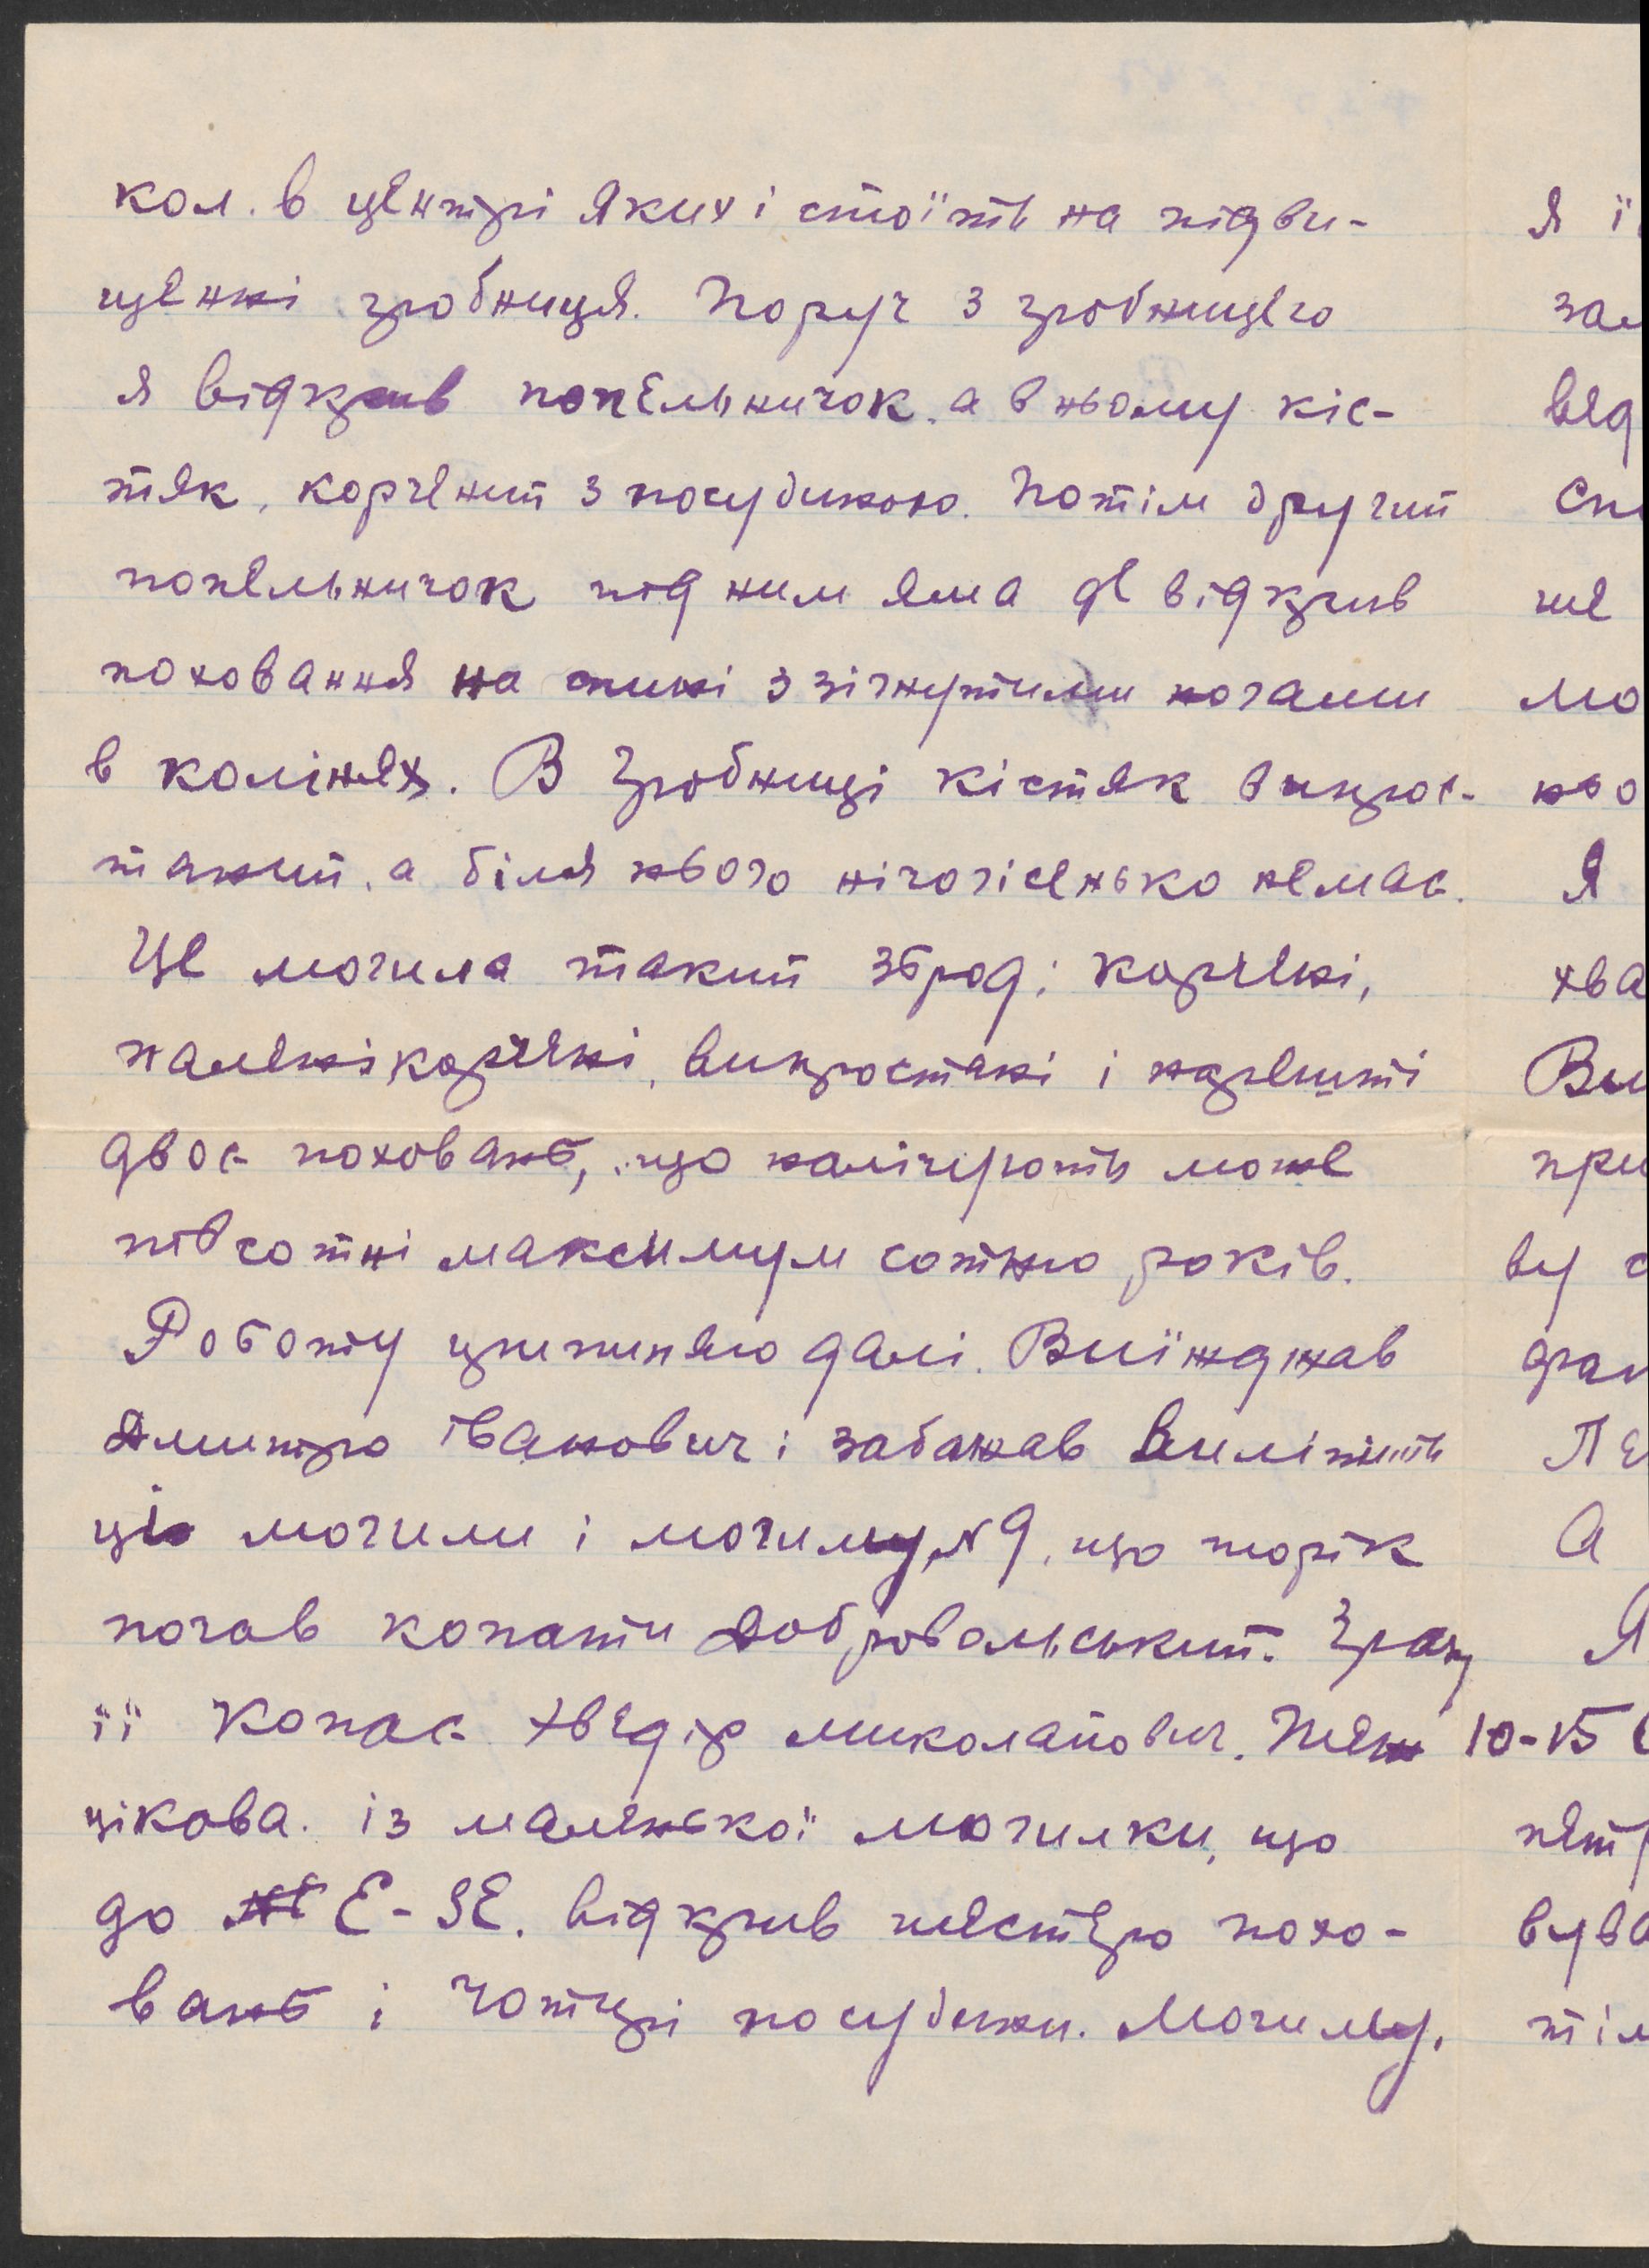 кол. в центрі яких і стоїть на підви-
щенні гробниця. Поруч з гробницею
я відкрив попельничок, а в ньому кіс-
тяк, корчений з посудиною. Потім другий
попельничок під ним яма де відкрив
поховання на спині з зігнутими ногами
в колінях. В гробниці кістяк випрос-
таний, а біля нього нічогісенько немає.
Це могила такий зброд: корчені,
палені корчені, випростані і нарешті
двоє поховань, що налічують може
півсотні максимум сотню років.
Роботу припиняю далі. Виїжджав
Дмитро Іванович і забажав виліпить
ці могили і могилу № 9, що торік
почав копати Добровольський. Зразу
її копає Хведір Миколайович.
цікова. із маленької могилки, що
до E-SE. відкрив шестеро похо-
вань і чотирі посудини. Могилу,
я ї
зал
вед
Сп
ше
мо
ньо
Я
хва
Ви
при
ву с
дал
Пе
А
Я
10-15
петр
вува
тіл